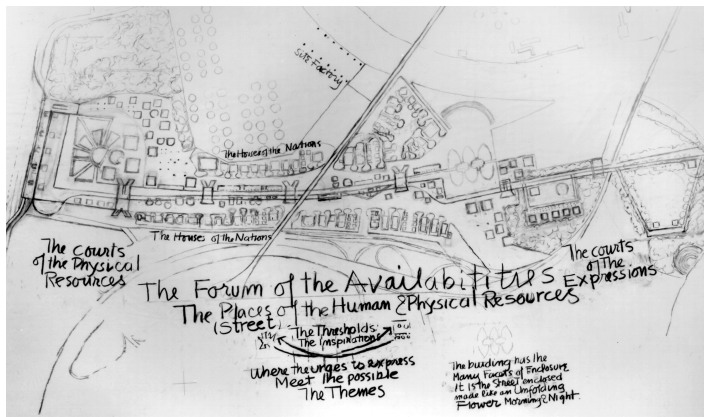 Silk Factory
The House of the Nations
The Houses of the Nations
The Courts
of the Physical
Resources
The Forum of the Availabilities
The Places of the Human & Physical Resources
(Street)
The Thresholds
The Inspiration
Where the urges to express
Meet the possible
The Themes
The courts
of The
Expressions
The building has the
Many Facets of Enclosure
It is the Street enclosed
made like an Unfolding
Flower Morning & Night.